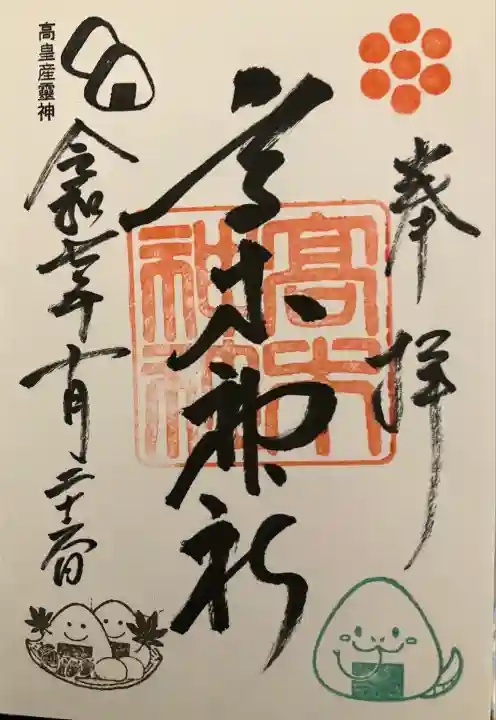 奉拝
高木神社
高木神社
令和七年十月二十六日
高皇産靈神